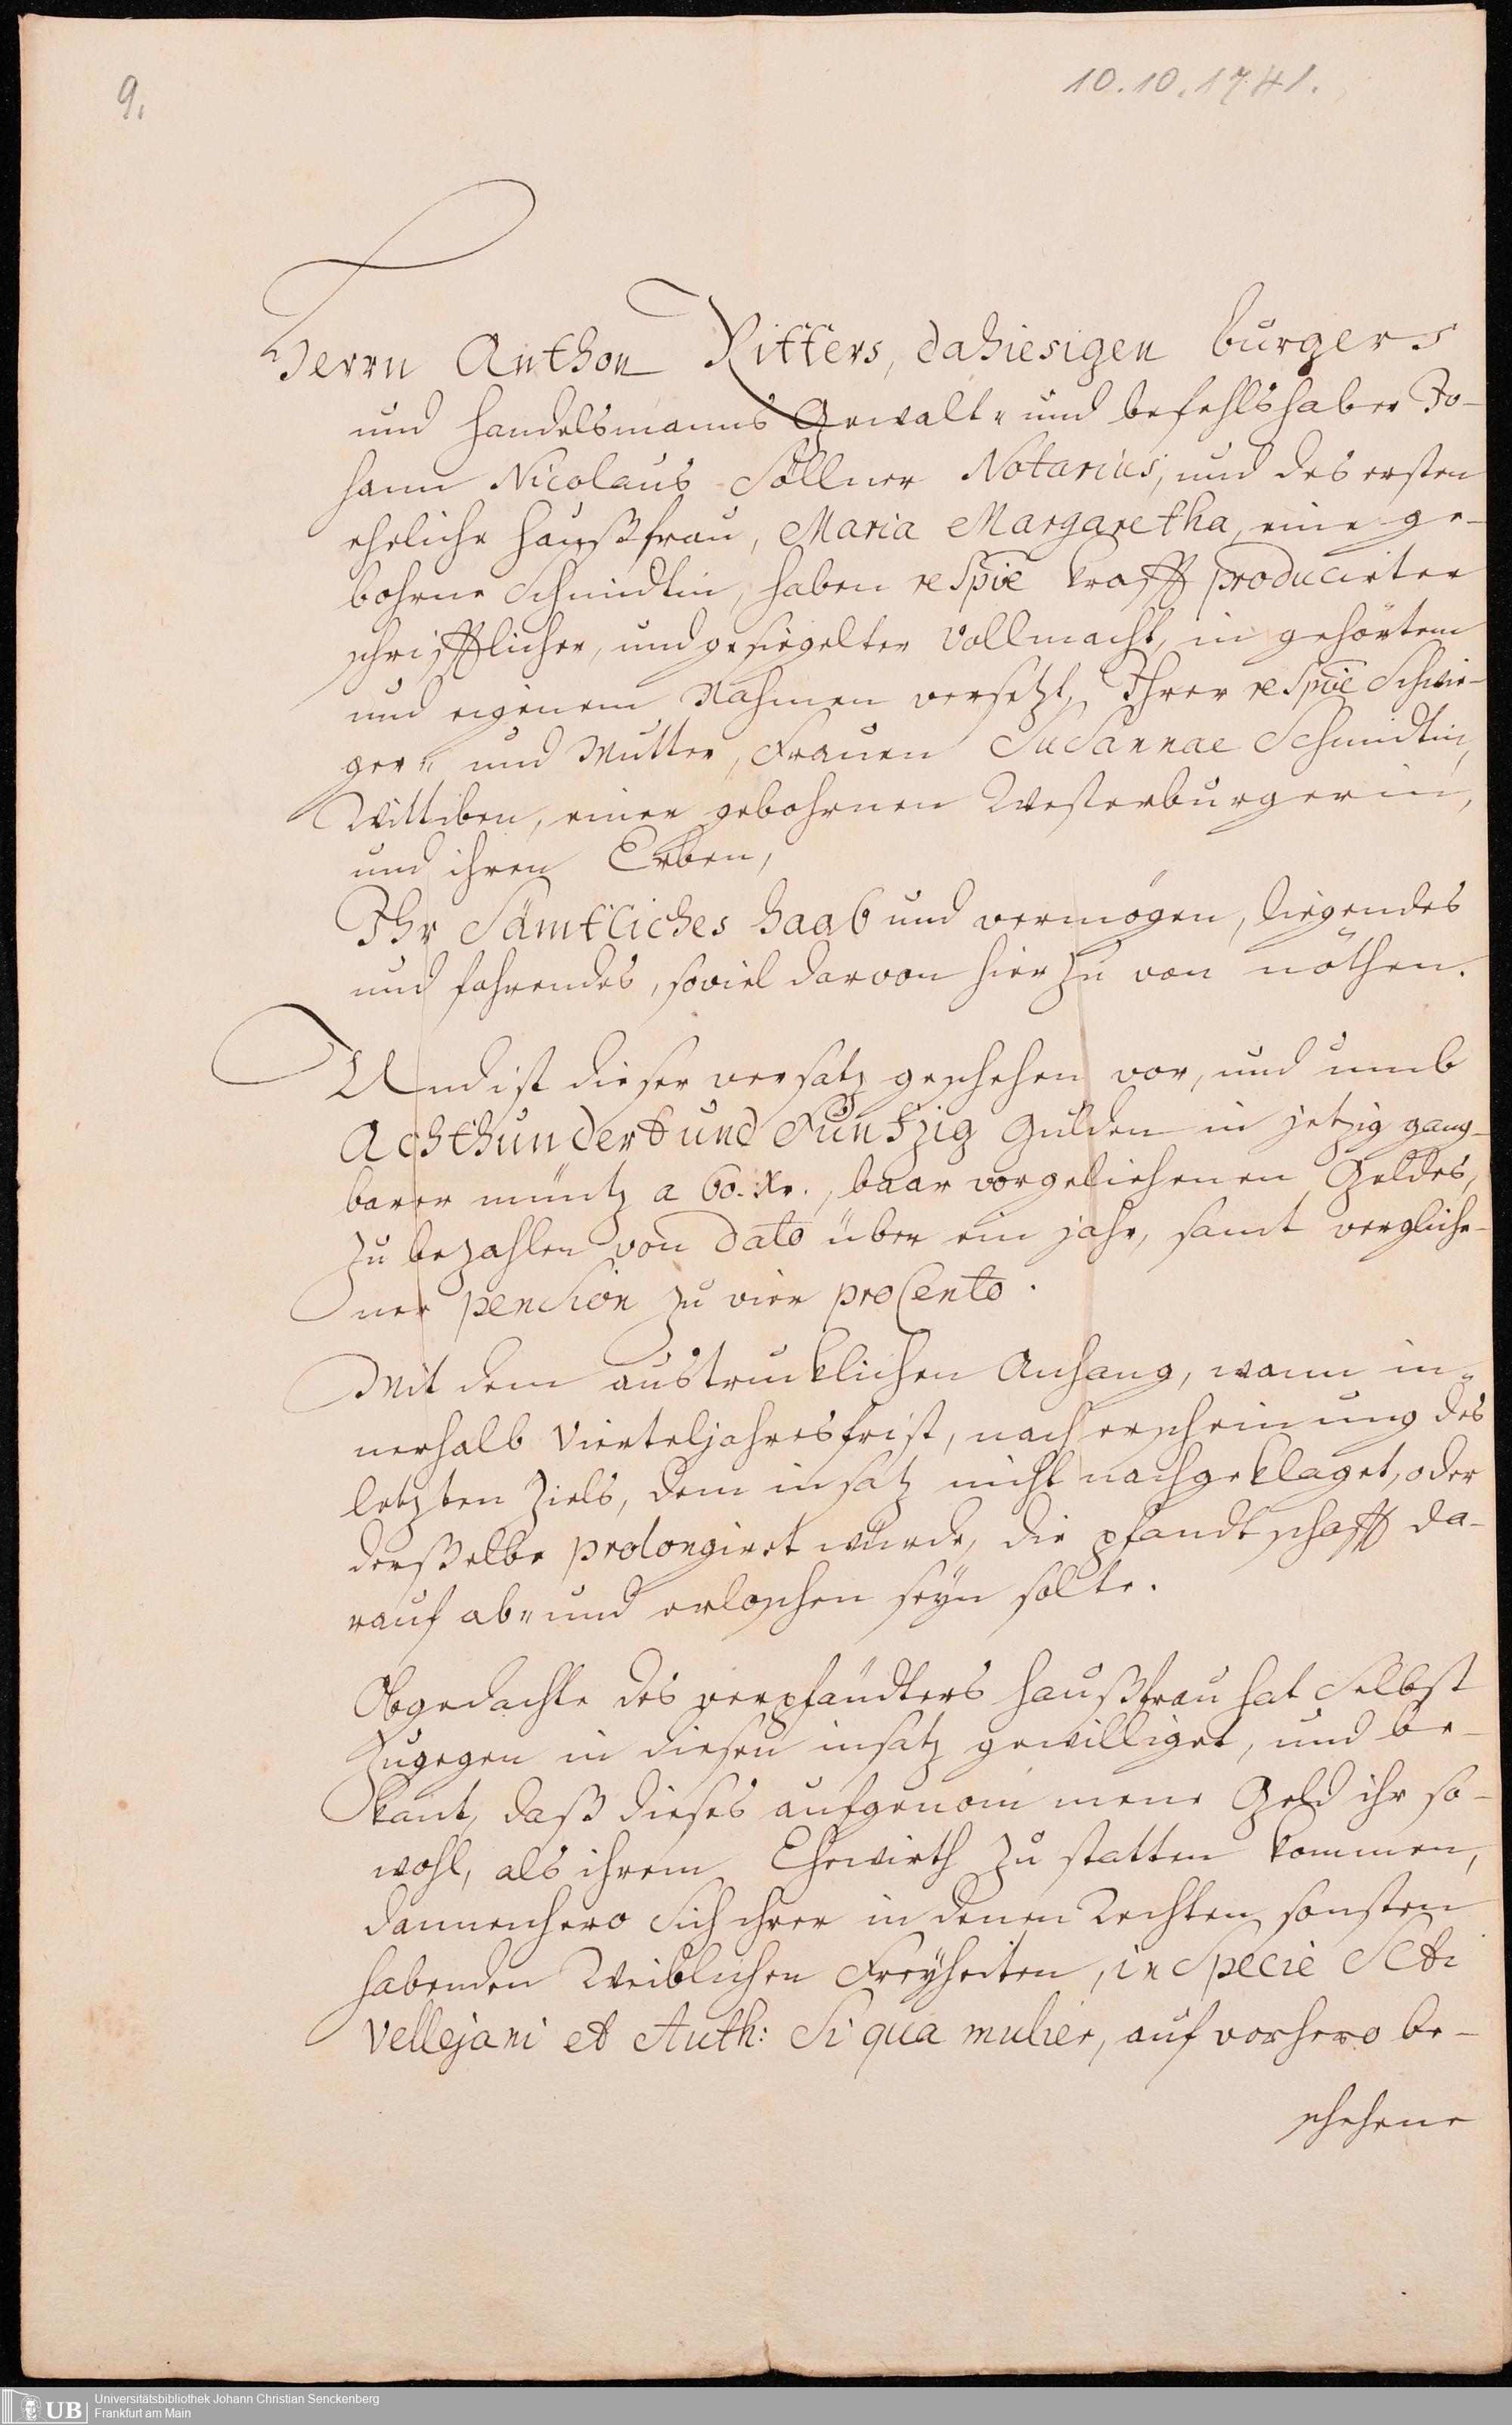 9.
10.10.1741.
Herrn Anthon Ritters, dahiesigen burgers
und handelsmanns Gewalt- und befehlshaber Jo-
hann Nicolaus Söllner Notarius, und des ersten
eheliche haußfrau, Maria Margaretha, eine ge-
bohrne Schmidtin, haben respīe krafft producirter
schrifftlicher, und gesiegelter Vollmacht, in gehörtem
und eigenem Nahmen versetzt, Ihrer respīe Schwie-
ger- und Mutter, Frauen Susannae Schmidtin,
Wittiben, einer gebohrnen Westerburgerin,
und ihren Erben,
Ihr Sämtliches haab und vermögen, liegendes
und fahrendes, soviel darvon hierzu von nöthen.
Und ist dieser versatz geschehen vor, und umb
Achthundert und Fünfzig Gulden in jetzig gang-
barer müntz a 60. Xr., baar vorgeliehenen Geldes,
zu bezahlen von dato über ein jahr, samt vergliche-
ner pension zu vier proCento.
Mit dem austrucklichen Anhang, wann in-
nerhalb Vierteljahresfrist, nach erscheinung des
letzten Ziels, dem insatz nicht nachgeklaget, oder
derßelbe prolongiret würde, die pfandtschafft da-
rauf ab- und erloschen seyn solte.
Obgedachte des verpfändters haußfrau hat Selbst
Zugegen in diesen insatz gewilliget, und be-
kant, daß dieses aufgenom̄mene Geld ihr so-
wohl, als ihrem Ehewirth zu statten kommen,
dannenhero Sich ihrer in denen Rechten sonsten
habenden Weiblichen Freyheiten, in Specie SCti
Vellejani et Auth: Si qua mulier, auf vorhero be-
schehene
UB
Universitätsbibliothek Johann Christian Senckenberg
Frankfurt am Main